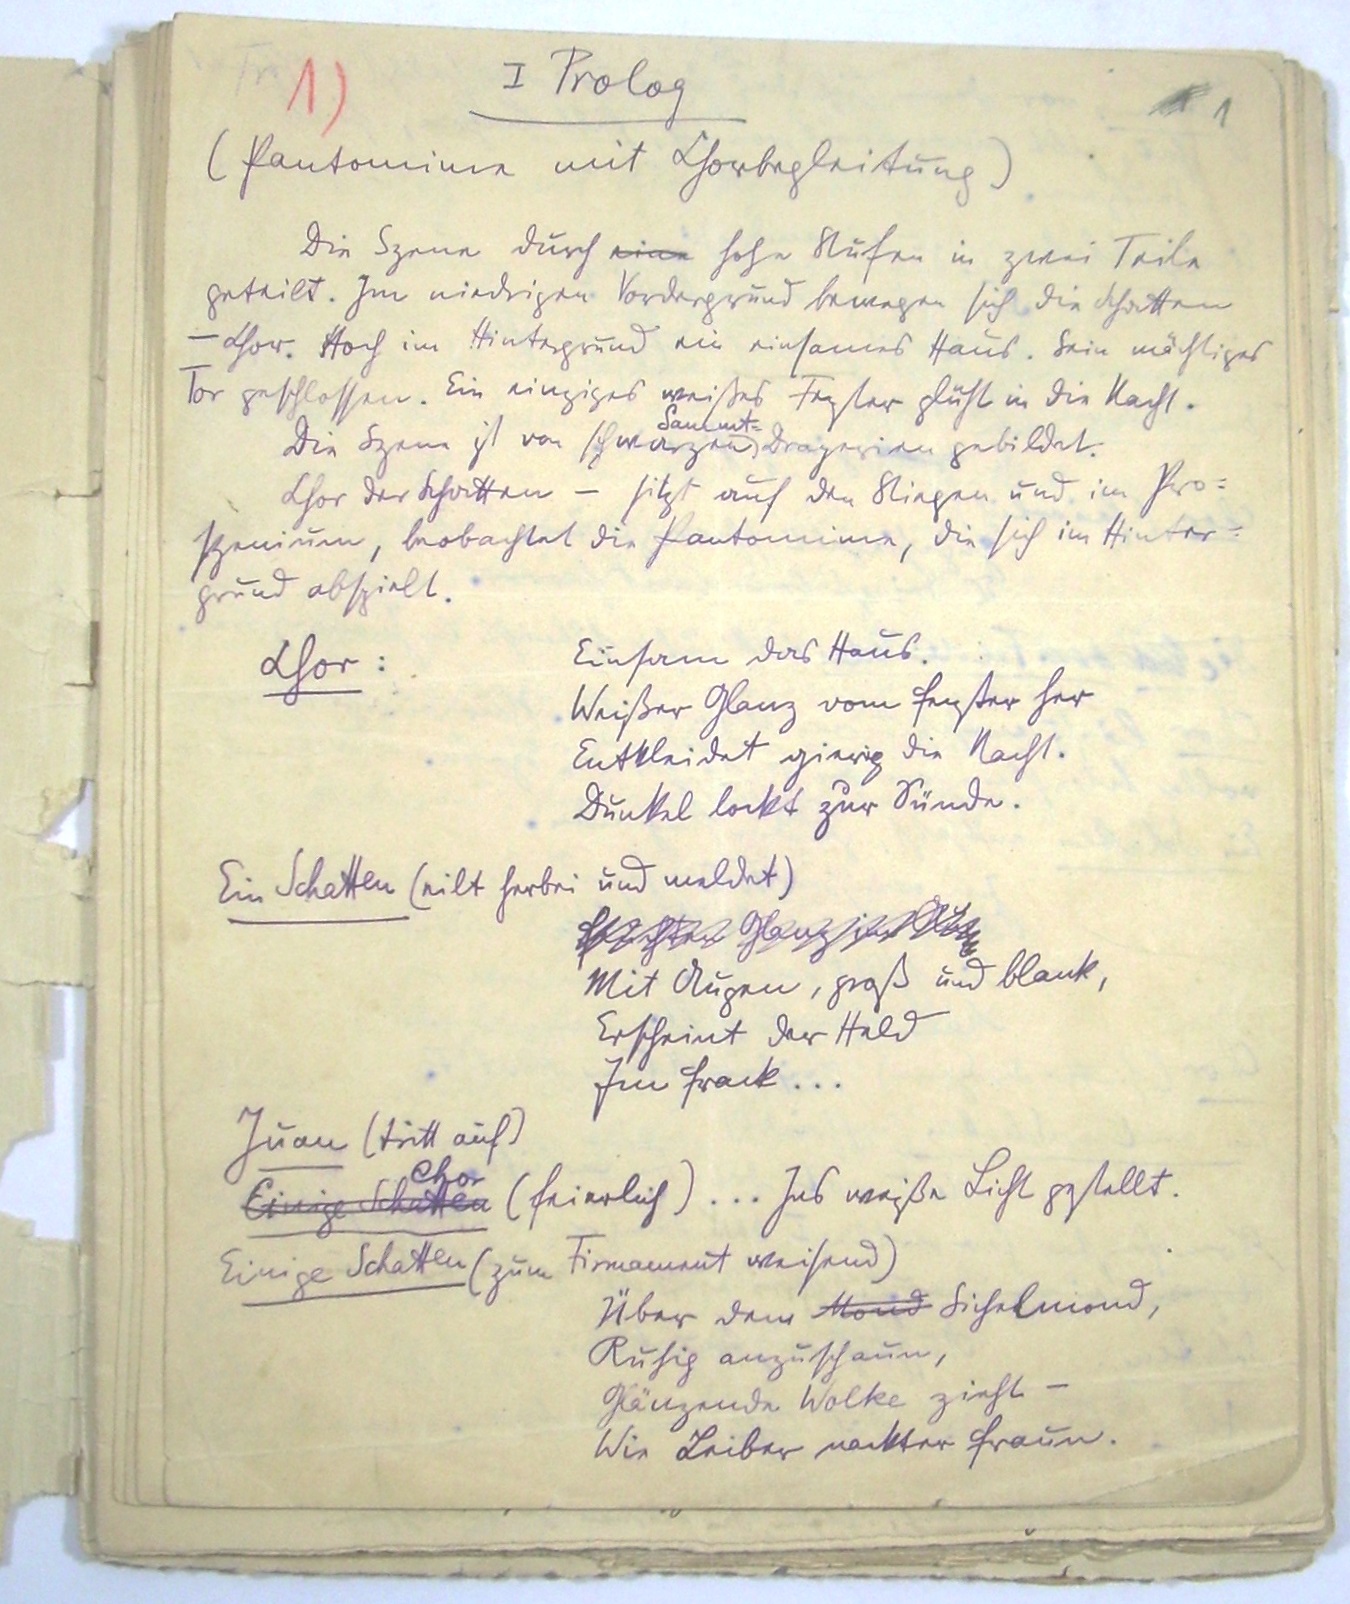 1)
I Prolog
1
(Pantomime mit Chorbegleitung)
Die Szene durch eine hohe Stufen in zwei Teile
geteilt. Im niedrigen Vordergrund bewegen sich die Schatten
– Chor. Hoch im Hintergrund ein einsames Haus. Sein mächtiges
Tor geschlossen. Ein einziges weißes Fenster glüht in die Nacht.
Sammt=
Die Szene ist von schwarzen Draperien gebildet.
Chor der Schatten – sitzt auf den Stiegen und im Pro=
szenium, beobachtet die Pantomime, die sich im Hinter=
grund abspielt.
Chor: Einsam das Haus.
Weißer Glanz vom Fenster her
Entkleidet gierig die Nacht.
Dunkel lockt zur Sünde.
Ein Schatten (eilt herbei und meldet)
Glanz
Mit Augen, groß und blank,
Erscheint der Held
Im Frack...
Juan (tritt auf)
Chor
Einige Schatten (feierlich) ... Ins weiße Licht gestellt.
Einige Schatten (zum Firmament weisend)
Über dem Mond Sichelmond,
Ruhig anzuschaun,
Glänzende Wolke zieht –
Wie Leiber nackter Fraun.